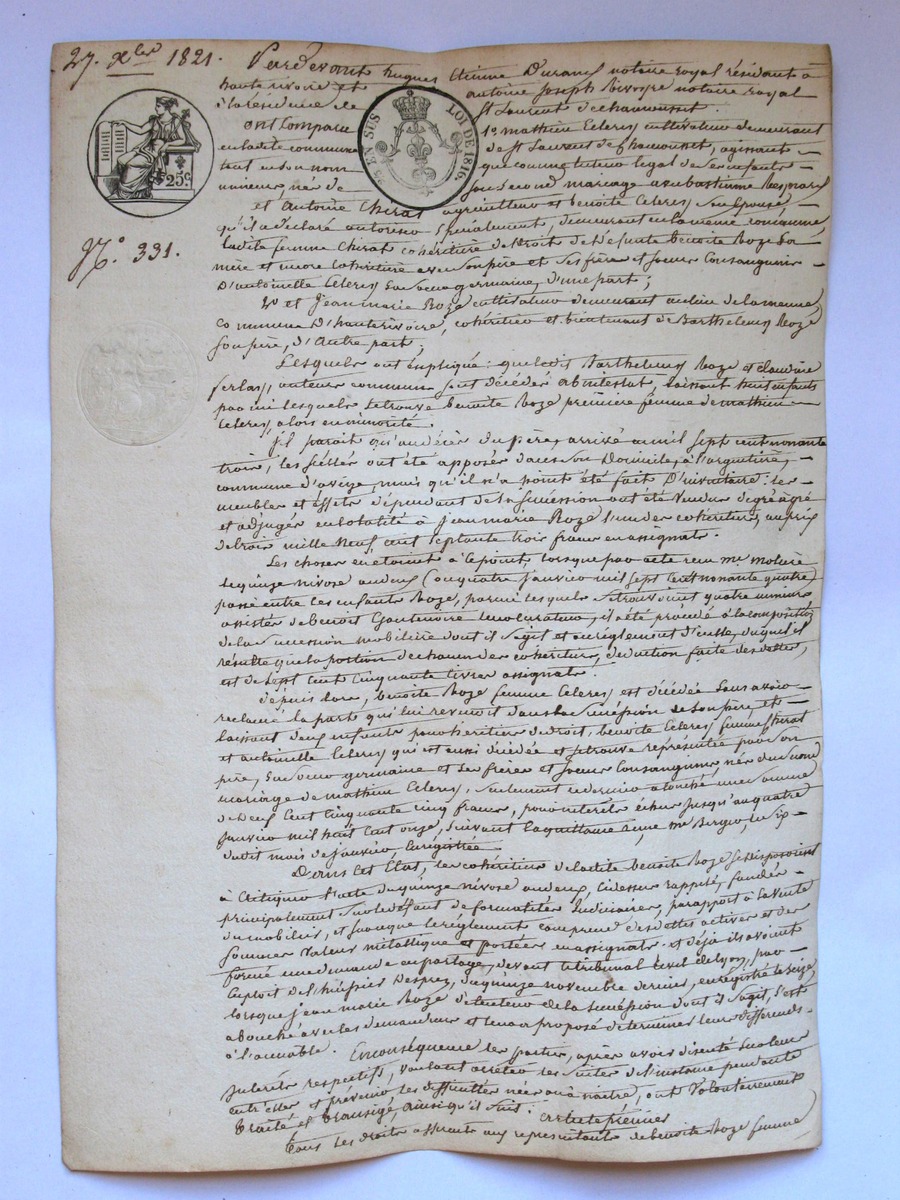 27. Xbre 1821. Pardevant hugues Etienne Durand notaire royal résidant à
haute rivoire et antoine Joseph Rivoyre notaire royal
à la résidence de St Laurent de chamousset.
ont Comparu 1o. mathieu Celerey cultivateur demeurant
en ladite commune de St Laurent de Chamousset, agissant
tant en son nom que comme tuteur légal de ses enfants
mineurs nés de son second mariage avec bastienne
et Antoine Chirat agriculteur et benoite Celerey son épouse,
qu'il a déclaré autoriser spécialement, demeurant en la même commune
ladite femme Chirat cohéritière de droit de défunte benoite Roze sa
mère et encore cohéritière avec son père et ses frère et soeurs Consanguins
D'antoinette Celerey sa soeur germaine, d'une part;
Et Jean marie Roze cultivateur demeurant au lieu de la
Commune D'hauterivoire, cohéritier et bientenant de Barthelemy Roze
son père, d'Autre part;
Lesquels ont expliqué: que ledit Barthelemy Roze et claudine
ferlay, auteurs communs sont décédés abintestat, laissant huit enfants
parmi lesquels se trouve benoite Roze première femme de mathieu
Celerey, alors en minorité.
Il parait qu'au décès du père, arrivé en mil sept cent nonante
trois, les scéllés ont été apposés dans son Domicile, à l'argentière,
commune d'aveize, mais qu'il n'a point été fait D'inventaire: les
meubles et éffets dépendant de la succession ont été vendus de gré à gré
et adjugés en totalité à Jean marie Roze l'un des cohéritiers, au prix
de trois mille neuf cent septante trois francs en assignats.
Les choses en étoient à ce point, lorsque par acte reçu me notaire
le quinze nivose an deux (ou quatre janvier mil sept cent nonante quatre)
passé entre les enfants Roze, parmi lesquels se trouvoient quatre mineurs
assistés de benoit leur curateur, il a été procédé à la composition
de la succession mobiliaire dont il s'agit et au réglement d'icelle, duquel il
résulte que la portion de chacun des cohéritiers, déduction faite des dettes,
est de sept cent cinquante livres assignats.
depuis lors, benoite Roze femme Celerey est décédée sans avoir
reclamé la part qui lui revenoit dans la succéssion de son père, et
laissant deux enfants pour héritiers de droit, benoite Celerey femme Chirat
et antoinette Celerey qui est aussi décédée et se trouve représentée par son
père, sa soeur germaine et ses frères et soeurs Consanguins, nés du second
mariage de mathieu Celerey, seulement ce dernier a touché une somme
de Deux Cent Cinquante Cinq francs, pour intérêts échus jusqu'au quatre
janvier mil huit cent onze, suivant la quittance devant me le six
dudit mois de janvier Enrégistrée.
Dans Cet Etat, les cohéritiers de ladite benoite Roze se disposoient
à critiquer l'acte du quinze nivose an deux, ci dessus rappelé, fondés
principalement sur le défaut de formalités Judiciaires, par rapport à la vente
du mobilier, et sur ce que le réglement comprend des dettes actives et des
sommes valeur métallique et portées en assignats. et déjà ils avoient
formé une demande en partage, devant le tribunal civil de Lyon, par
Exploit de l'huissier Desprez, du quinze novembre dernier, enrégistré le seize,
lorsque jean marie Roze détenteur de la succession dont il s'agit, s'est
abouché avec les demandeurs et leur a proposé de terminer leurs différends
à l'amiable. En conséquence les parties, après avoir discuté sur leurs
Intérêts respectifs, voulant arrêter les suites de l'instance pendante
entr'elles et prévenir les difficultés nées ou à naitre, ont volontairement
traité et transigé ainsi qu'il suit. article premier
Tous les droits afférants aux représentants de benoite Roze femme
25 c.
EN SUS
LOI DE 1816.
No. 331.